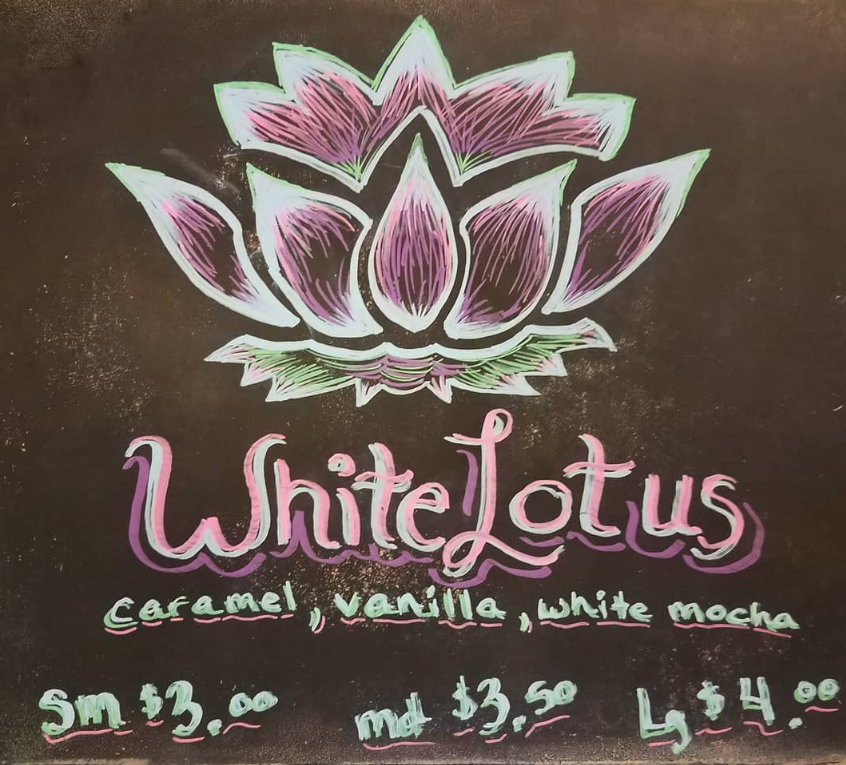 White Lotus
caramel, vanilla, white mocha
Sm $3.00 md $3.50 Lg $4.00